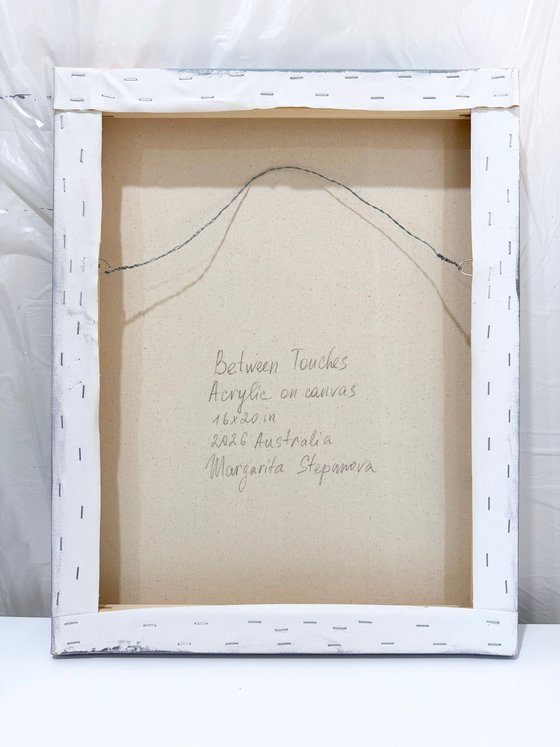 Between Touches
Acrylic on canvas
16x20 in
2026 Australia
Margarita Stepanova